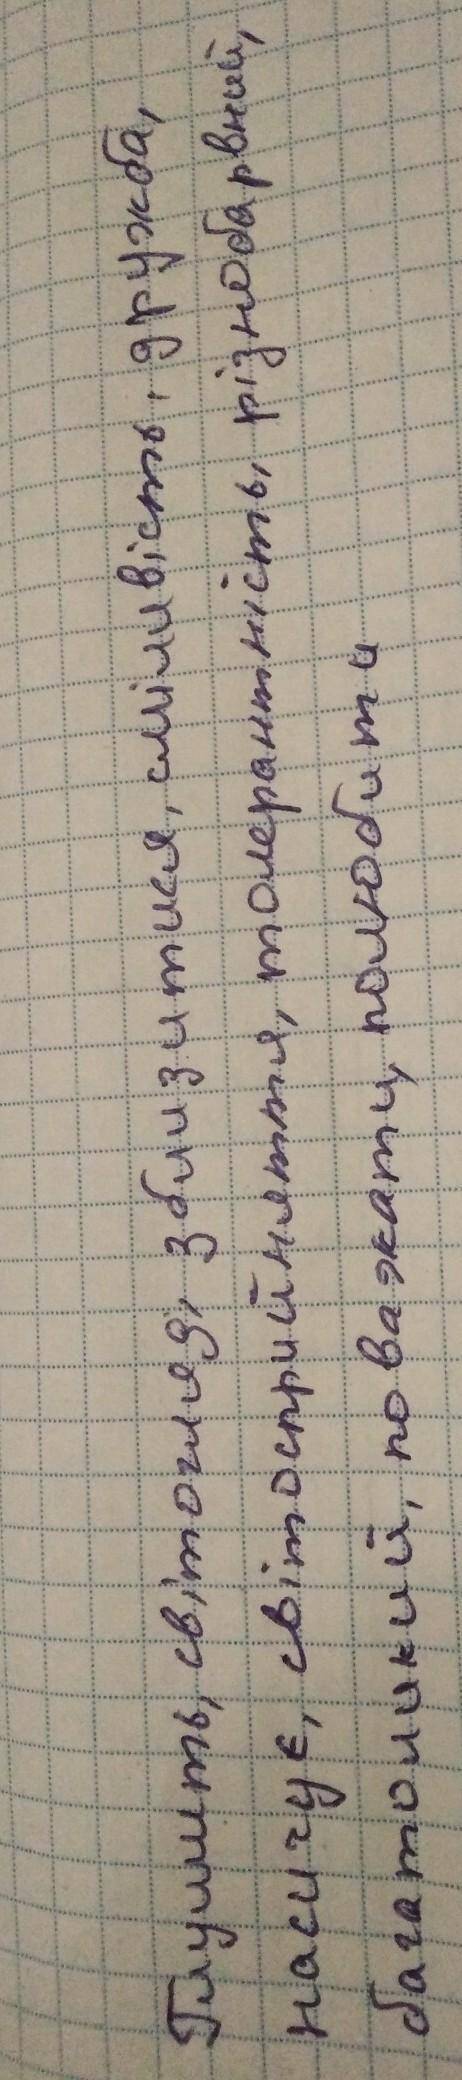 Глушить, світогляд, зблизитися, сміливість, дружба,
насичує, світосприйняття, толерантність, різнобарвний,
багатоликий, поважати, полюбити